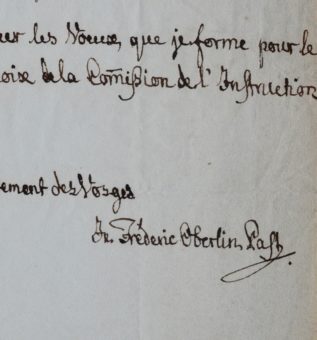 les Vœux, que je forme pour le
de la Com̄ission de l'Instruction
des Vosges
Jn Fréderic Oberlin Past